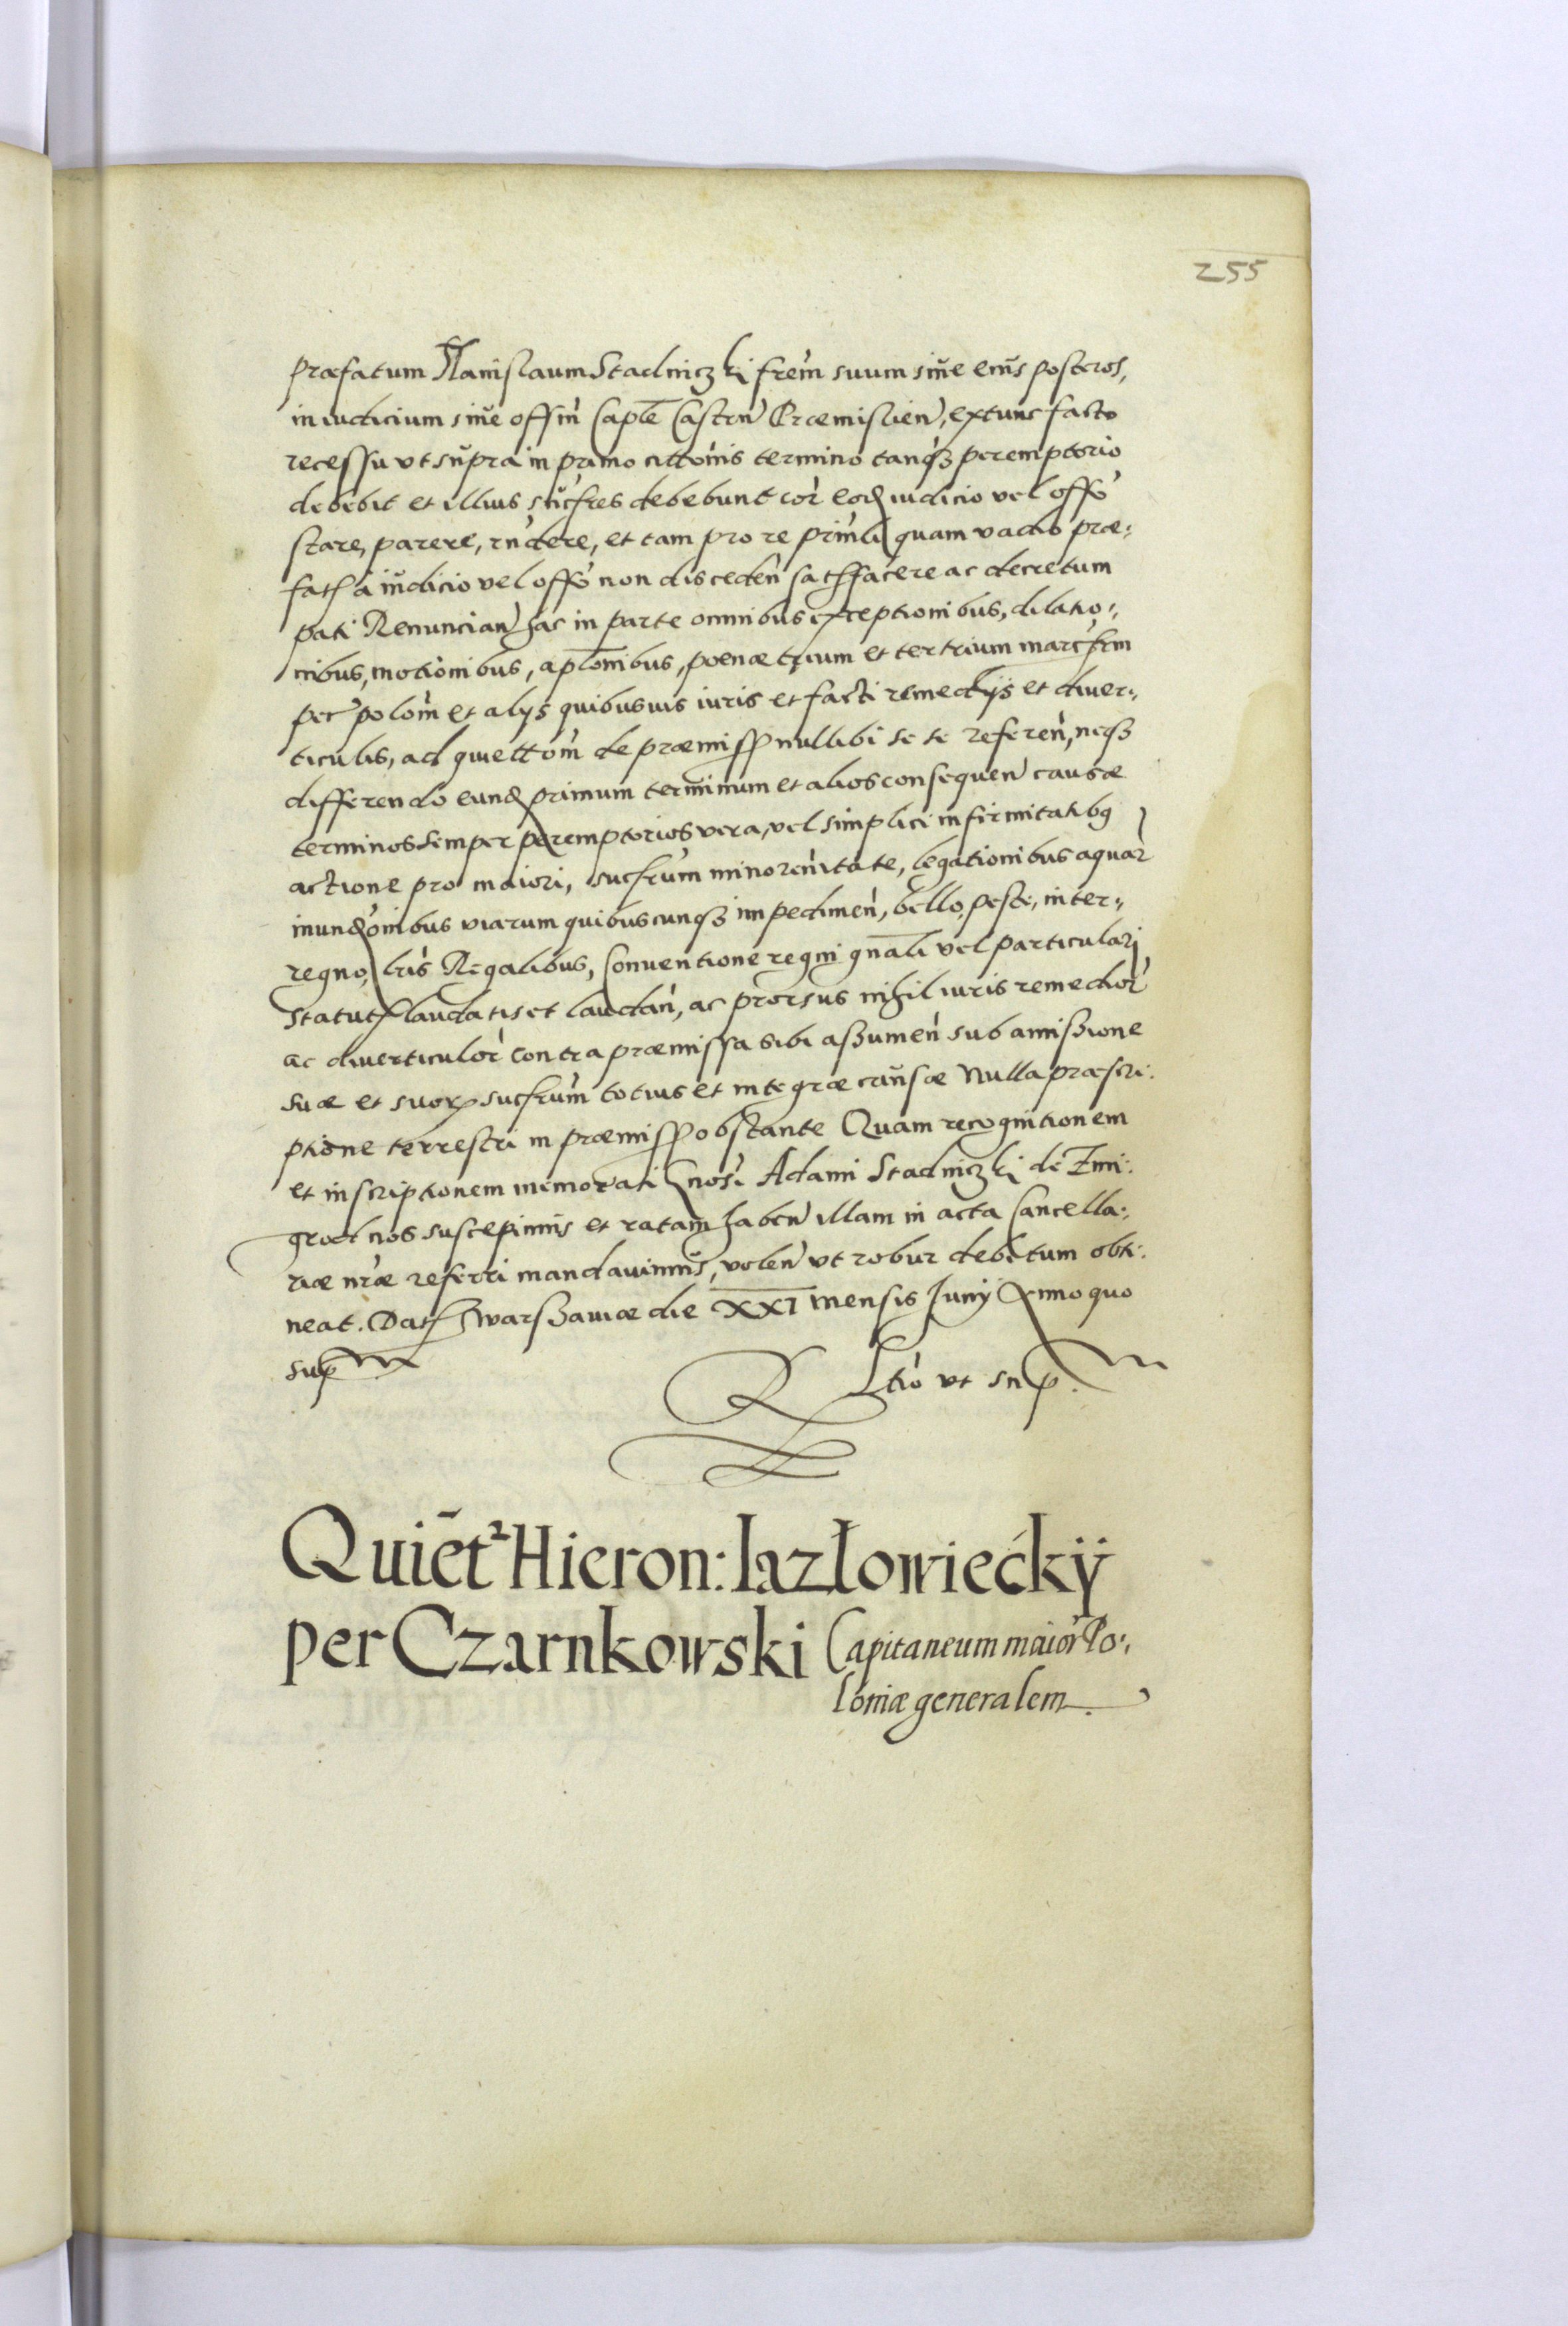 255
præfatum Stanislaum Stadniczki frem̃ suum siue eius̃ posteros,
in iudicium siue offm̃ Caple Castren̄ Præmislien̄, extunc facto
recessu vt supra in primo cittonis termino tanq̃ꝫ peremptorio
debebit et illius sucr̃es debebunt cor̃ eod iudicio vel offo
stare, parere, rndere, et tam pro re prinl̃i quam vadio præ:
fat a iudicio vel offo non disceden̄ satisfacere ac decretum
pati Renuncian̄ hac in parte omnibus exceptionibus, dilatio:
nibus, motionibus, aplonibus, poenæ trium et tertrium
per polom̃ et alijs quibusuis iuris et facti remedijs et diuer:
ticulis, ad quiettom̃ de præmiss nullibi se se referen̄, neqꝫ
differendo eund primum terminum et alios consequen̄ causæ
terminos semper peremptorios vera, vel simplici infirmitatibꝫ
actione pro maiori, sucrum̃ minoren̄itate, legationibus aquar̃
inundonibus viarum quibuscunqꝫ impedimen̄, bello, peste, inter:
regno, lris̃ Regalibus, Conuentione regni gnali vel particulari
statut laudatis et laudan̄, ac prorsus nihil iuris remedior̃
ac diuerticulor̃ contra præmissa sibi assumen̄ sub amissione
suæ et suorꝝ sucrum̃ totius et integræ causæ Nulla præscri:
ptione terrestri in præmiss obstante Quam recognitionem
et inscriptionem memorati Gnosi Adami Stadniczki de Zmi:
grod nos suscepimus et ratam haben̄ illam in acta Cancella:
riæ nr̃æ referri mandauimus, volen̄ vt robur debitum obti:
neat. Dat Warschauiæ die XXI mensis Junij Anno quo
sup
Rltio vt sup.
Quiet̃ Hieron: Iazłowiećkÿ
per Czarnkowski Capitaneum maior̃ Po:
loniæ generalem